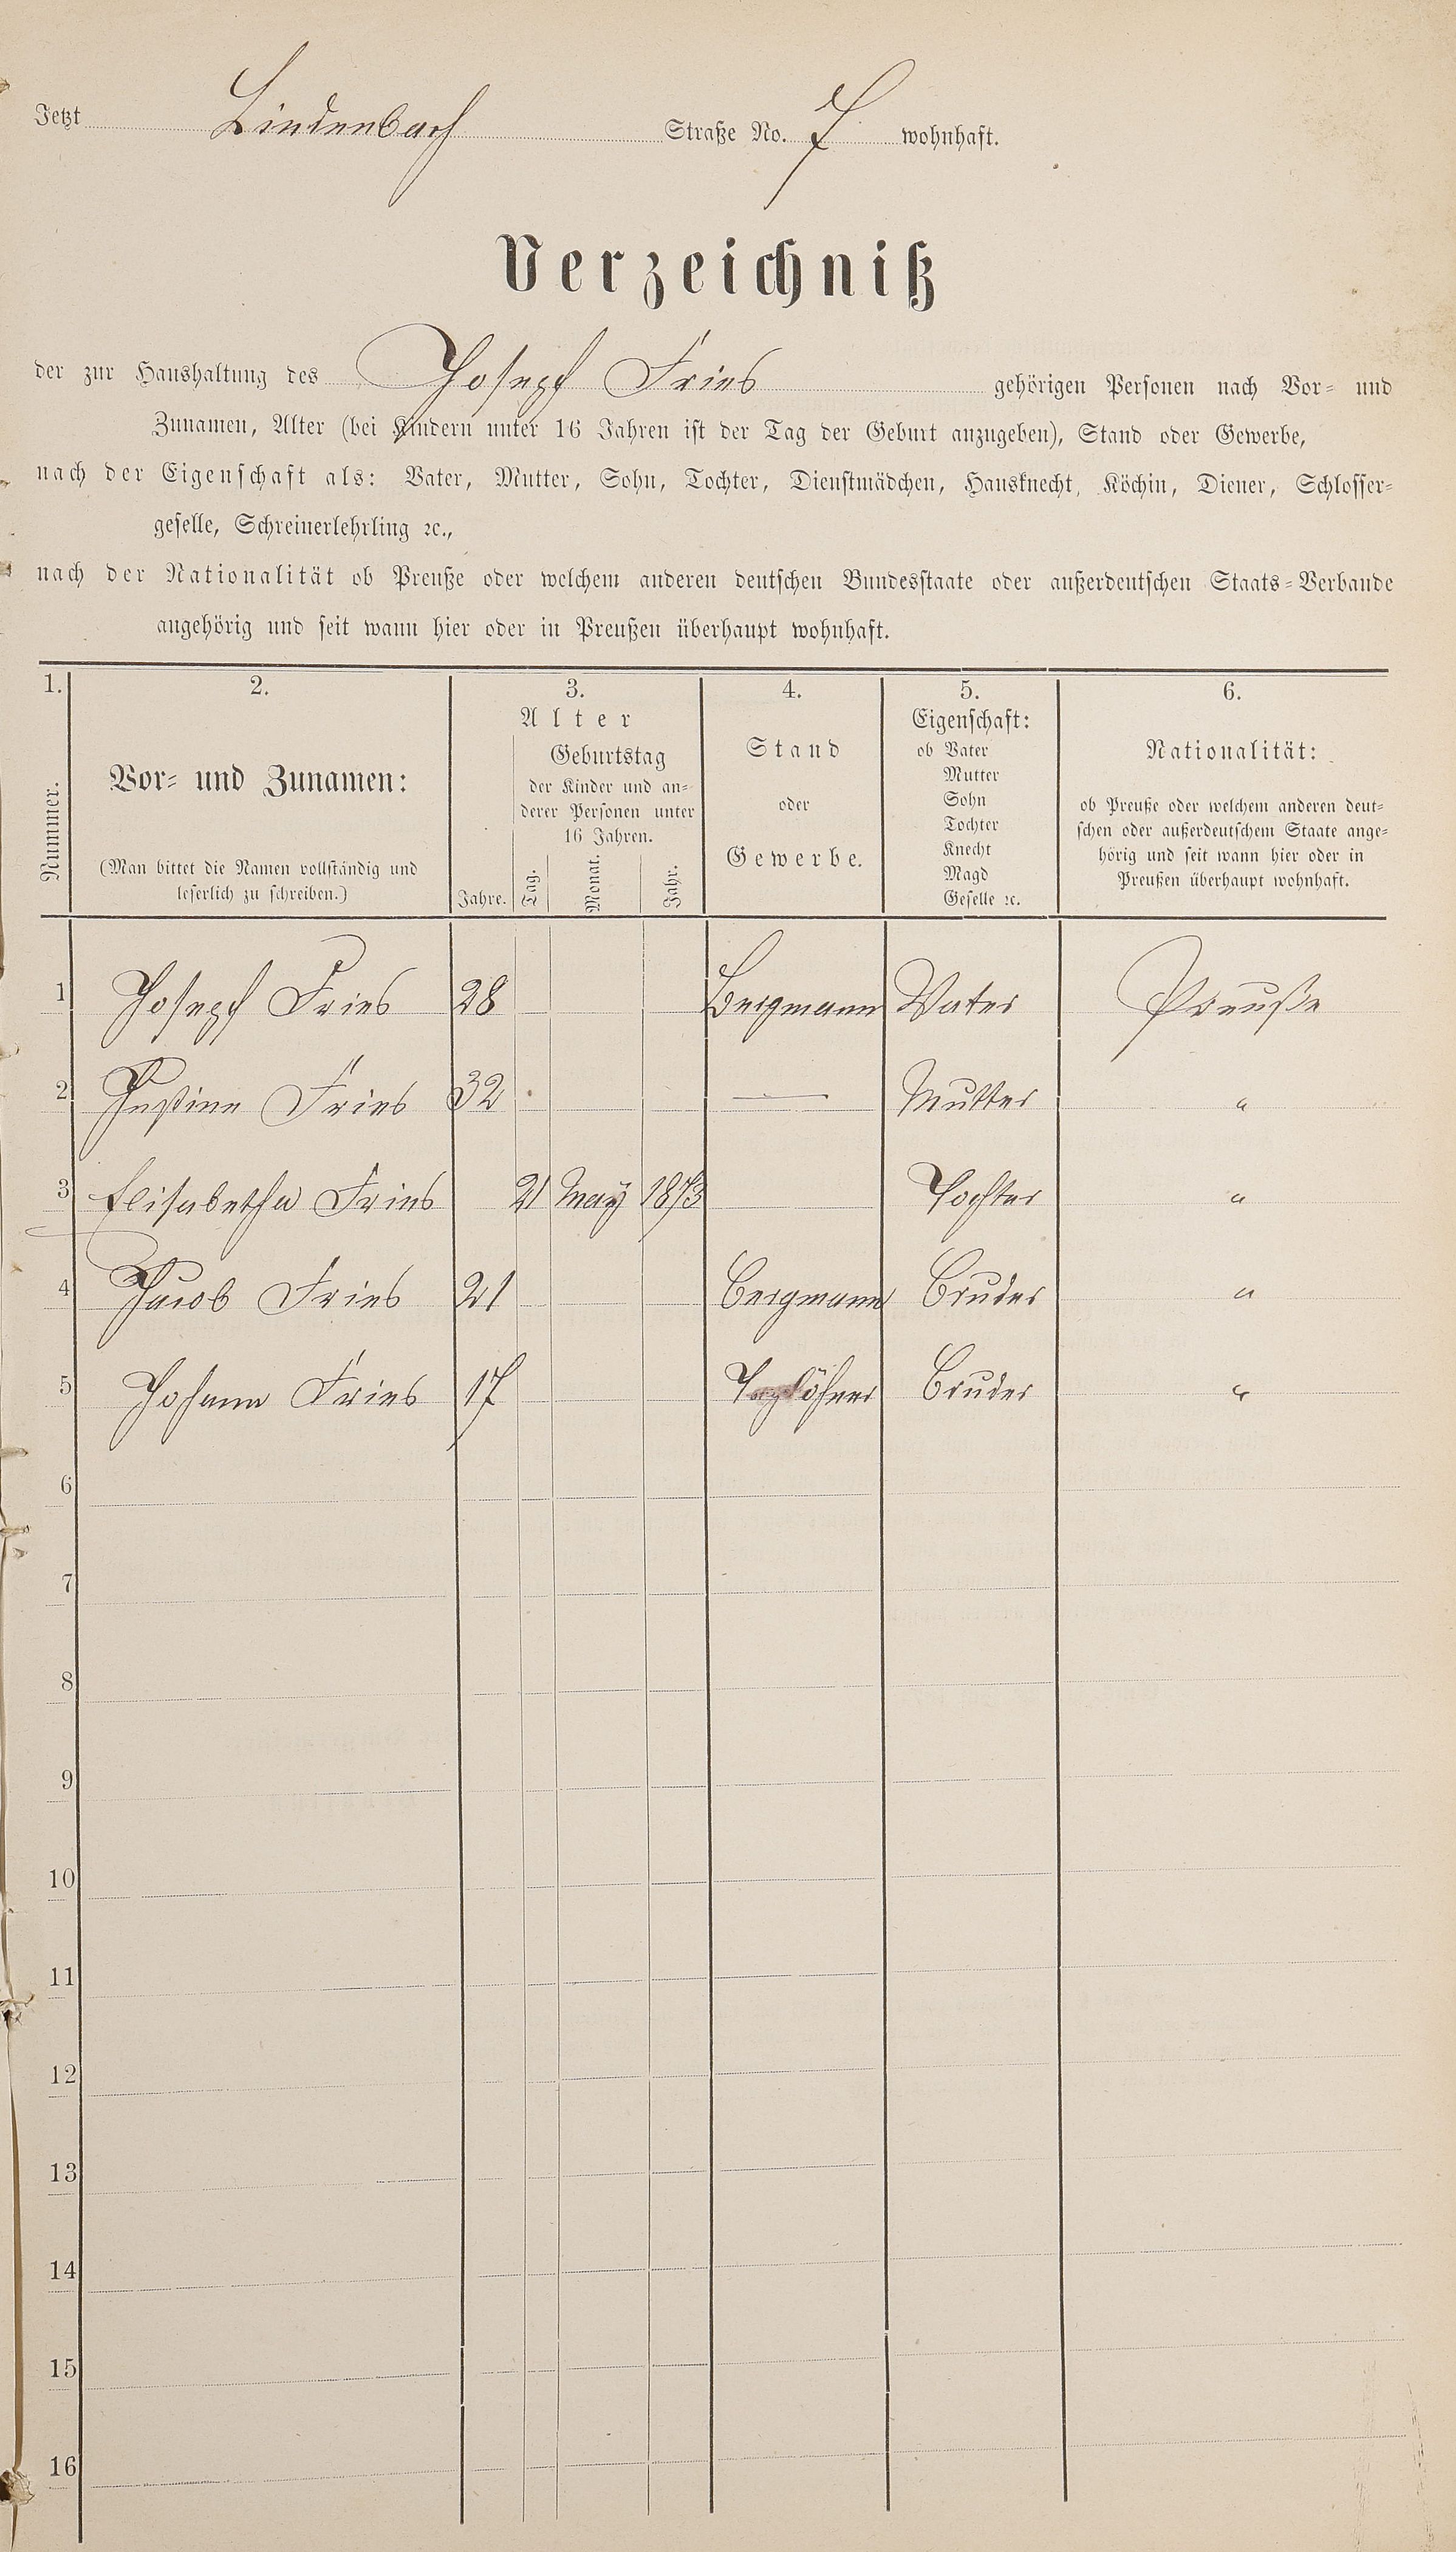 Jetzt Lindenbach Straße No. 7 wohnhaft.
Verzeichniß
der zur Haushaltung des Joseph Fries gehörigen Personen nach Vor- und
Zunamen, Alter (bei Kindern unter 16 Jahren ist der Tag der Geburt anzugeben), Stand oder Gewerbe,
nach der Eigenschaft als: Vater, Mutter, Sohn, Tochter, Dienstmädchen, Hausknecht, Köchin, Diener, Schlosser-
geselle, Schreinerlehrling ꝛc.,
nach der Nationalität ob Preuße oder welchem anderen deutschen Bundesstaate oder außerdeutschen Staats-Verbande
angehörig und seit wann hier oder in Preußen überhaupt wohnhaft.
1.
Nummer.
2.
Vor- und Zunamen:
(Man bittet die Namen vollständig und
leserlich zu schreiben.)
3.
Alter
Jahre.
Geburtstag
der Kinder und an-
derer Personen unter
16 Jahren.
Tag.
Monat.
Jahr.
4.
Stand
oder
Gewerbe.
5.
Eigenschaft:
ob Vater
Mutter
Sohn
Tochter
Knecht
Magd
Geselle ꝛc.
6.
Nationalität:
ob Preuße oder welchem anderen deut-
schen oder außerdeutschem Staate ange-
hörig und seit wann hier oder in
Preußen überhaupt wohnhaft.
1 Joseph Fries 28 Bergmann Vater Preuße
2 Justine Fries 32 — Mutter "
3 Elisabetha Fries 21 May 1873 Tochter "
4 Jacob Fries 21 Bergmann Bruder "
5 Johann Fries 17 Taglöhner Bruder "
6
7
8
9
10
11
12
13
14
15
16